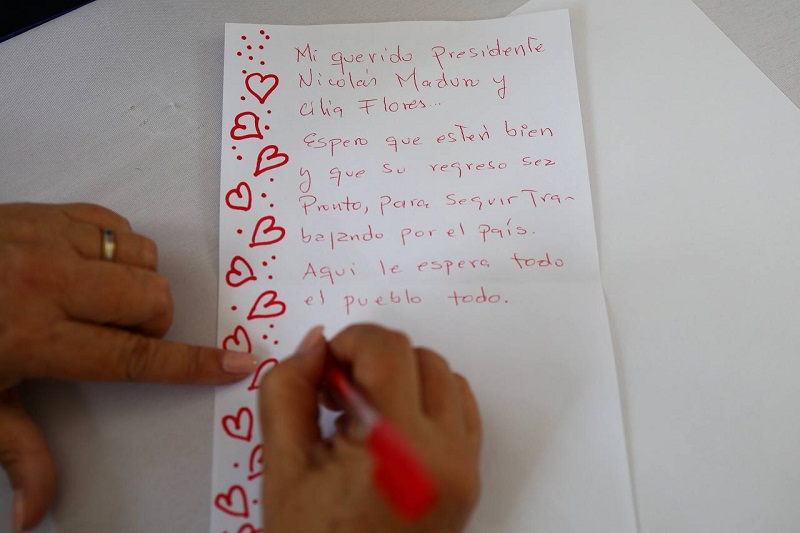 Mi querido Presidente
Nicolás Maduro y
Cilia Flores...
Espero que esten bien
y que su regreso sea
Pronto, para seguir Tra-
bajando por el país.
Aqui le espera todo
el pueblo todo.